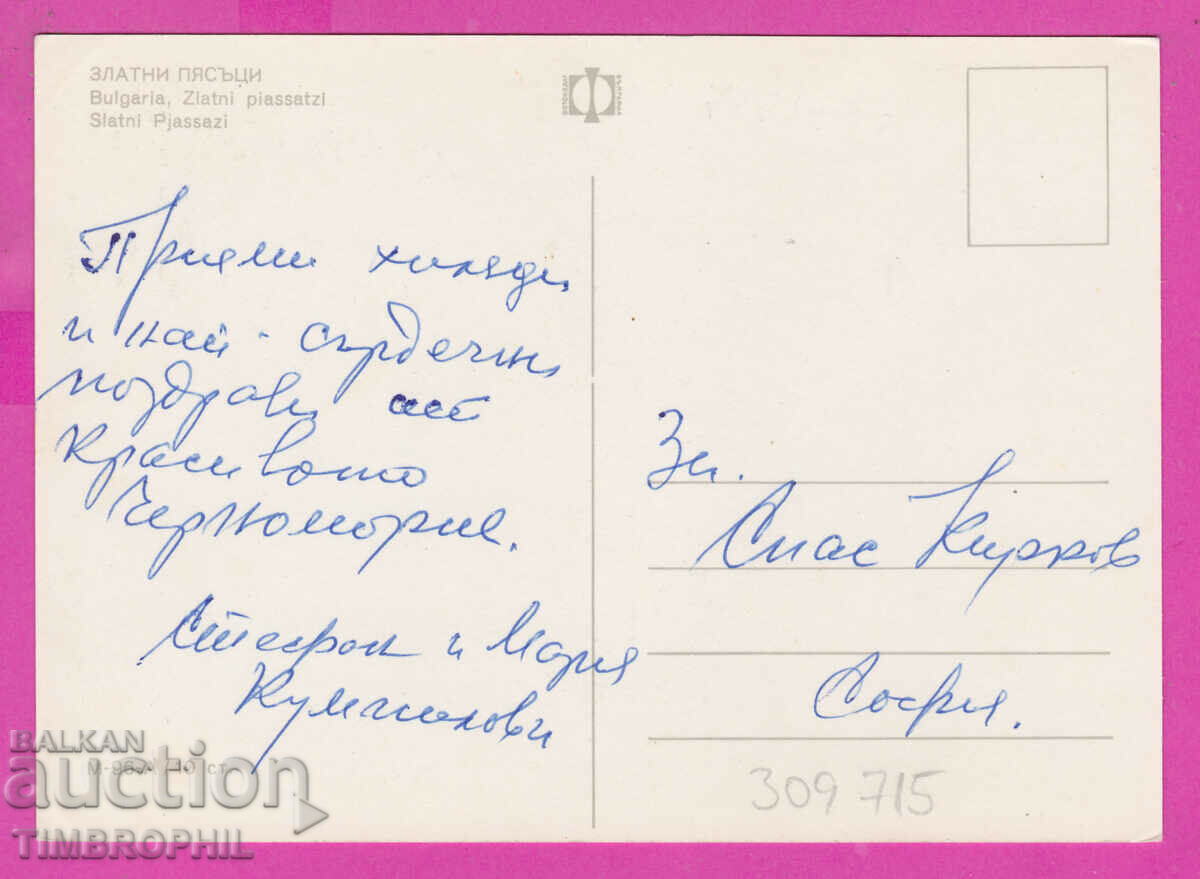 ЗЛАТНИ ПЯСЪЦИ
Bulgaria, Zlatni piassatzi
Slatni Pjassazi
Приеми хиляди
и най-сърдечни
поздрави от
красивото
Черноморие.
Стефан и Мария
Зн.
Спас Кирков
София.
309715
10 ст
BALKAN
auction
TIMBROPHIL